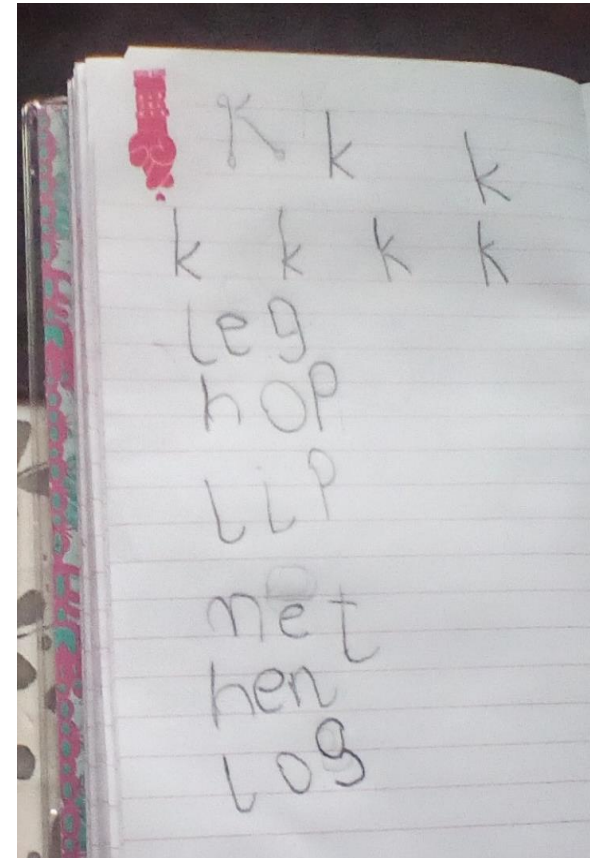 K k k
k k k k
leg
hop
lip
net
hen
log